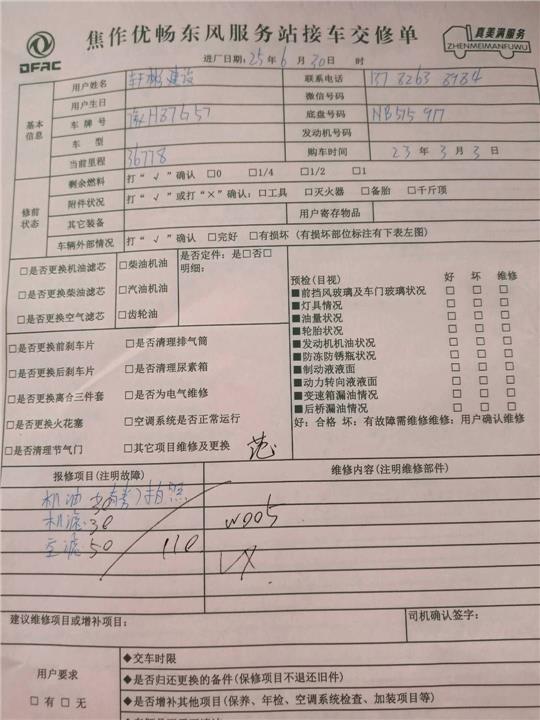 DFAC
焦作优畅东风服务站接车交修单
真美满服务
ZHENMEIMANFUWU
进厂日期: 25 年 6 月 30 日 时
基本信息
用户姓名
建设
联系电话
用户生日
微信号码
车牌号
豫H87657
底盘号码
NB515917
车型
发动机号码
当前里程 36778
购车时间 23 年 3 月 3 日
修前状态
剩余燃料 打“√”确认 □0 □1/4 □1/2 □1
附件状况 打“√”或打“×”确认: □工具 □灭火器 □备胎 □千斤顶
其它装备
用户寄存物品
车辆外部情况 打“√”确认 □完好 □有损坏 (有损坏部位标注有下表左图)
□是否更换机油滤芯 □柴油机油
是否定件: 是□否□
明细:
□是否更换柴油滤芯 □汽油机油
□是否更换空气滤芯 □齿轮油
预检(目视) 好 坏 维修
■前挡风玻璃及车门玻璃状况 □ □ □
■灯具情况 □ □ □
■油量状况 □ □ □
■轮胎状况 □ □ □
■发动机机油状况 □ □ □
■防冻防锈瓶状况 □ □ □
■制动液液面 □ □ □
■动力转向液液面 □ □ □
■变速箱漏油情况 □ □ □
■后桥漏油情况 □ □ □
好: 合格 坏: 有故障需维修维修: 用户确认维修
□是否更换前刹车片 □是否清理排气筒
□是否更换后刹车片 □是否清理尿素箱
□是否更换离合三件套 □是否为电气维修
□是否更换火花塞 □空调系统是否正常运行
□是否清理节气门 □其它项目维修及更换
范
报修项目(注明故障)
维修内容(注明维修部件)
机油 拍照
机滤 30
空滤 50 110
W005
建议维修项目或增补项目:
司机确认签字:
用户要求
□有 □无
◆交车时限
◆是否归还更换的备件(保修项目不退还旧件)
◆是否增补其他项目(保养、年检、空调系统检查、加装项目等)